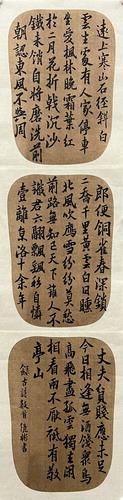 遠上寒山石徑斜白
雲生處有人家停車
坐愛楓林晚霜葉紅
於二月花折戟沉沙
鐵未銷自將磨洗前
朝認東風不與周
郎便銅雀春深鎖
二喬千里黃雲白日曛
北風吹雁雪紛紛莫愁
前路無知己天下誰人不
識君六翮飄飄私自憐
壹離京洛十余年
丈夫貧賤應未足
今日相逢無酒錢衆鳥
高飛盡孤雲獨去閒
相看兩不厭祇有敬
亭山
錄古詩數首書